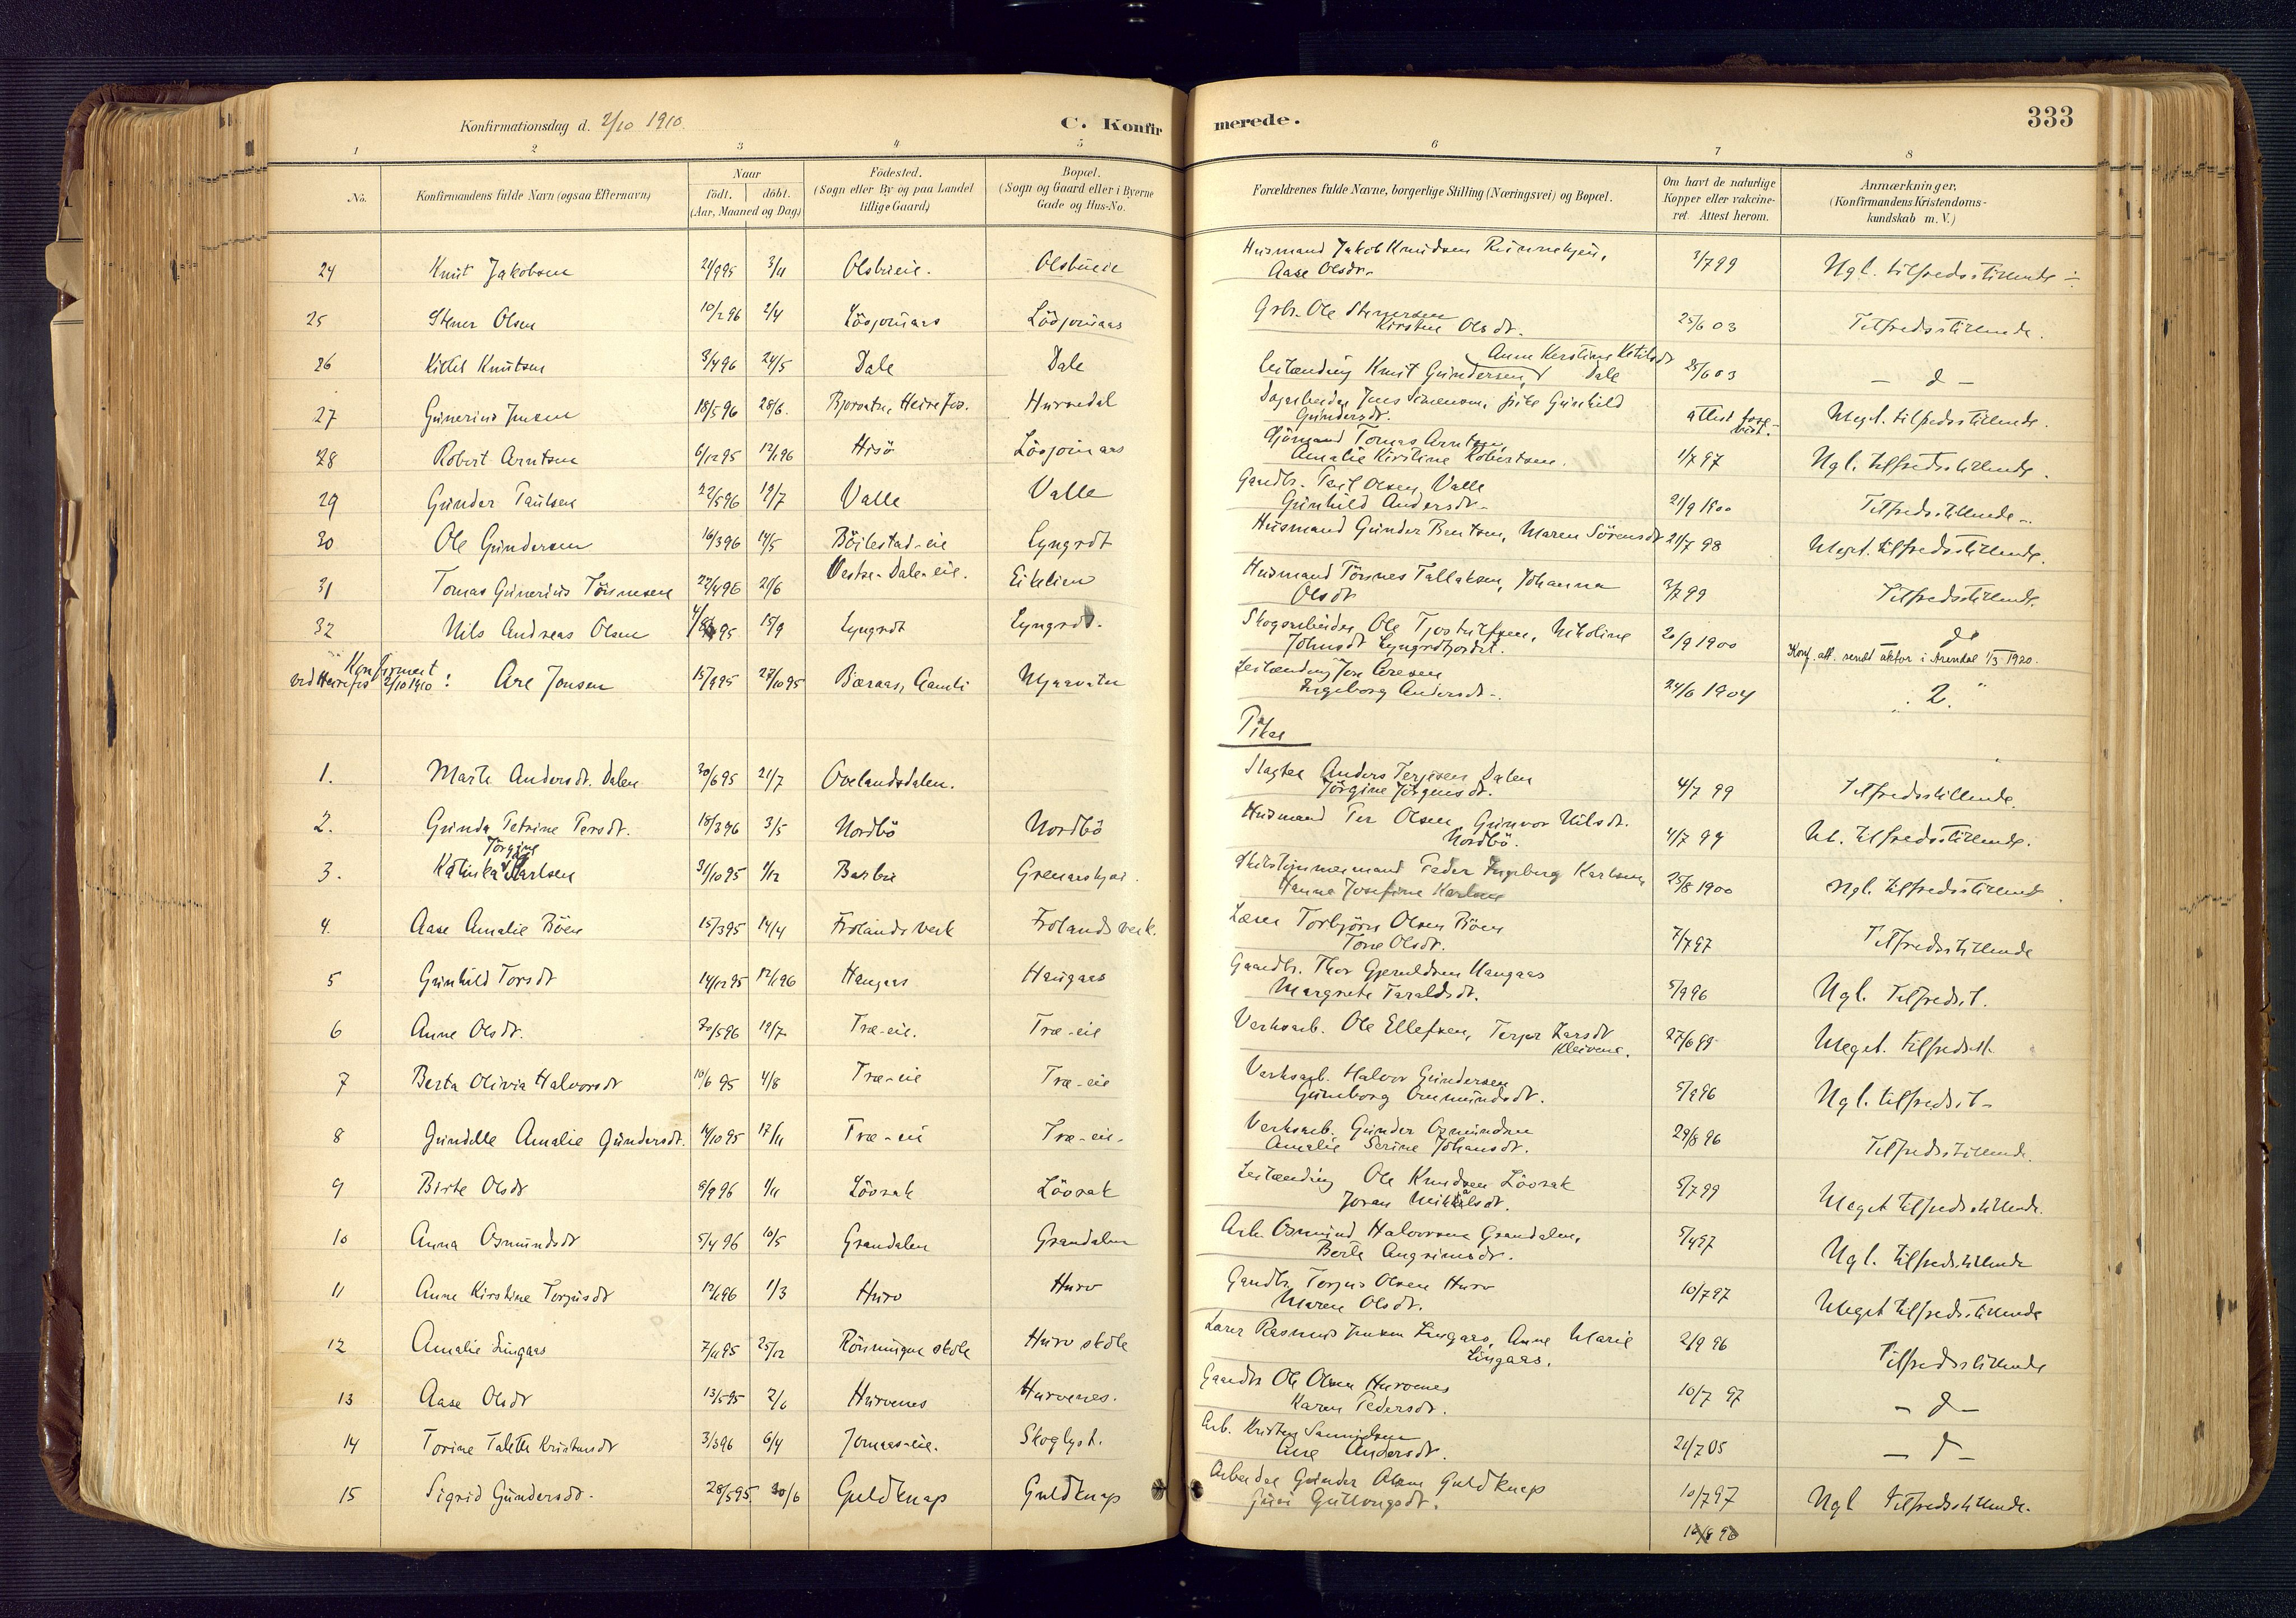 Konfirmationsdag d. 2/10 1910.
C. Konfirmerede.
333
1 2 3 4 5 6 7 8
No.
Konfirmandens fulde Navn (ogsaa Efternavn)
Naar
født. døbt.
(Aar, Maaned og Dag)
Fødested.
(Sogn eller By og paa Landet
tillige Gaard)
Bopæl.
(Sogn og Gaard eller i Byerne
Gade og Hus-No.
Forældrenes fulde Navne, borgerlige Stilling (Næringsvei) og Bopæl.
Om havt de naturlige
Kopper eller vakcine-
ret. Attest herom.
Anmærkninger.
(Konfirmandens Kristendoms-
kundskab m. V.)
24 Knut Jakobsen 21/9 95 3/11 Olsbueie. Olsbueie Husmand Jakob Knudsen
Aase Olsdr. 3/7 99 Ngl. tilfredsstillende
25 Stener Olsen 10/2 96 2/4 Løvjomaas Løvjomaas Grbr. Ole Stenersen
Kirstine Olsdt. 25/6 03 Tilfredsstillende.
26 Kittel Knutsen 3/4 96 24/5 Dale Dale Leilænding Knut Gundersen, Anne Kerstine Ketilsdt
Dale 25/6 03 — d —
27 Gunerius Jensen 18/5 96 28/6. Bjorvatn, Heirefos. Hurvedal Dagarbeider Jens Simensen, pike Gunhild
Gundersdt. attest fore-
vist. Meget tilfredsstillende.
28 Robert Arntsen 6/12 95 12/1 96 Hisö Løvjomaas Sjömand Tomas Arntsen
Amalie Kirstine Robertsen. 1/7 97 Ngl. tilfredsstillende.
29 Gunder Paulsen 22/5 96 19/7 Valle Valle Gaardbr. Paul Olsen Valle
Gunhild Andersdt. 21/9 1900 Tilfredsstillende.
30 Ole Gundersen 16/3 96 14/5 Böilestad-eie Lyngrdt Husmand Gunder Bentsen, Maren Sörensdt 21/7 98 Meget tilfredsstillende.
31 Tomas Gunerius Tönnesen 22/4 96 21/6 Vestre-Dale-eie. Eiklien Husmand Tönnes Tallaksen, Johanna
Olsdt 3/7 99 Tilfredsstillende.
32 Nils Andreas Olsen 4/8 95 15/9 Lyngrdt Lyngrdt. Skogsarbeider Ole Tjostulfsen, Nikoline
Johnsdt 20/9 1900 do
Konf. att. sendt aktor i Arendal 1/3 1920.
Konfirmert
ved Heirefos 2/10 1910 : Are Jonsen 15/9 95 27/10 95 Baraas, Gamli Mjaavatn Leilænding Jon Aresen
Ingeborg Andersdt. 24/6 1904 2.
Piker
1. Marte Andersdt. Dalen 30/6 95 21/7 Ovelandsdalen. Slagter Anders Terjesen Dalen
Jörgine Jörgensdt. 4/7 99 Tilfredsstillende.
2. Gunda Petrine Persdt. 18/3 96 3/5 Nordbö Nordbö Husmand Per Olsen, Gunvor Nilsdt.
Nordbö. 4/7 99 M. tilfredsstillende.
3. Katinka Jörgine Karlsen 31/10 95 1/12 Barbu Skibstømmermand Peder Ingeberg Karlsen,
Hanna Josefine Karlsen 25/8 1900 Ngl. tilfredsstillende.
4. Aase Amalie Böen 15/3 95 14/4 Frolands verk Frolands verk. Læser Torbjörn Olsen Böen
Tone Olsdt. 7/7 97 Tilfredsstillende
5 Gunhild Torsdt 14/12 95 12/1 96 Haugaas Haugaas Gaardbr. Thor Gjeruldsen Haugaas
Margrete Taraldsdt. 5/9 96 Ngl. Tilfredst.
6 Anne Olsdt. 30/5 96 19/7 Træ-eie. Træ-eie Verksarb. Ole Ellefsen, Terjer Larsdt
Kleivene. 27/6 99 Meget tilfredsst.
7 Berta Olivia Halvorsdt 10/6 95 4/8 Træ-eie Træ-eie Verksarb. Halvor Gundersen
Gunborg Ommundsdt. 5/9 96 Ngl. tilfredst.
8 Gundelle Amalie Gundersdt. 14/10 95 17/11 Træ-eie Træ-eie. Verksarb. Gunder Osmundsen
Amalie Serine Johansdt. 29/8 96 Tilfredsstillende.
9 Birte Olsdt 8/9 96 1/11 Løvrak Løvrak Leilænding Ole Knudsen Løvrak
Joran Mikkalsdt. 5/7 99 Meget tilfredsstillende.
10 Anna Osmundsdt 5/4 96 10/5 Grandalen Grandalen Arb. Osmund Halvorsen Grandalen,
Berte Angrimsdt. 5/4 97 Ngl. tilfredsstillende
11 Anne Kirstine Torjusdt 12/1 96 1/3 Hurv Hurv Gaardbr. Torjus Olsen Hurv
Maren Olsdt. 10/7 97 Meget tilfredsstillende
12 Amalie Lingaas 7/11 95 25/12 skole Hurv skole Lærer Rasmus Jensen Lingaas, Anne Marie
Lingaas. 2/9 96 Tilfredsstillende
13 Aase Olsdt 13/5 95 2/6 Hurvenes Hurvenes. Gaardbr Ole Olsen Hurvenes
Karen Pedersdt. 10/7 97 — d —
14 Torine Talette Kristensdt 3/3 96 6/4 Jomaas-eie. Skoglyst. Arb. Kristen Samuelsen
Ane Andersdt. 21/7 05 — d —
15 Sigrid Gundersdt. 28/5 95 30/6 Guldknap Guldknap Arbeider Gunder Olsen Guldknap
Guri Gullongsdt. 10/7 97 Ngl tilfredsstillende.